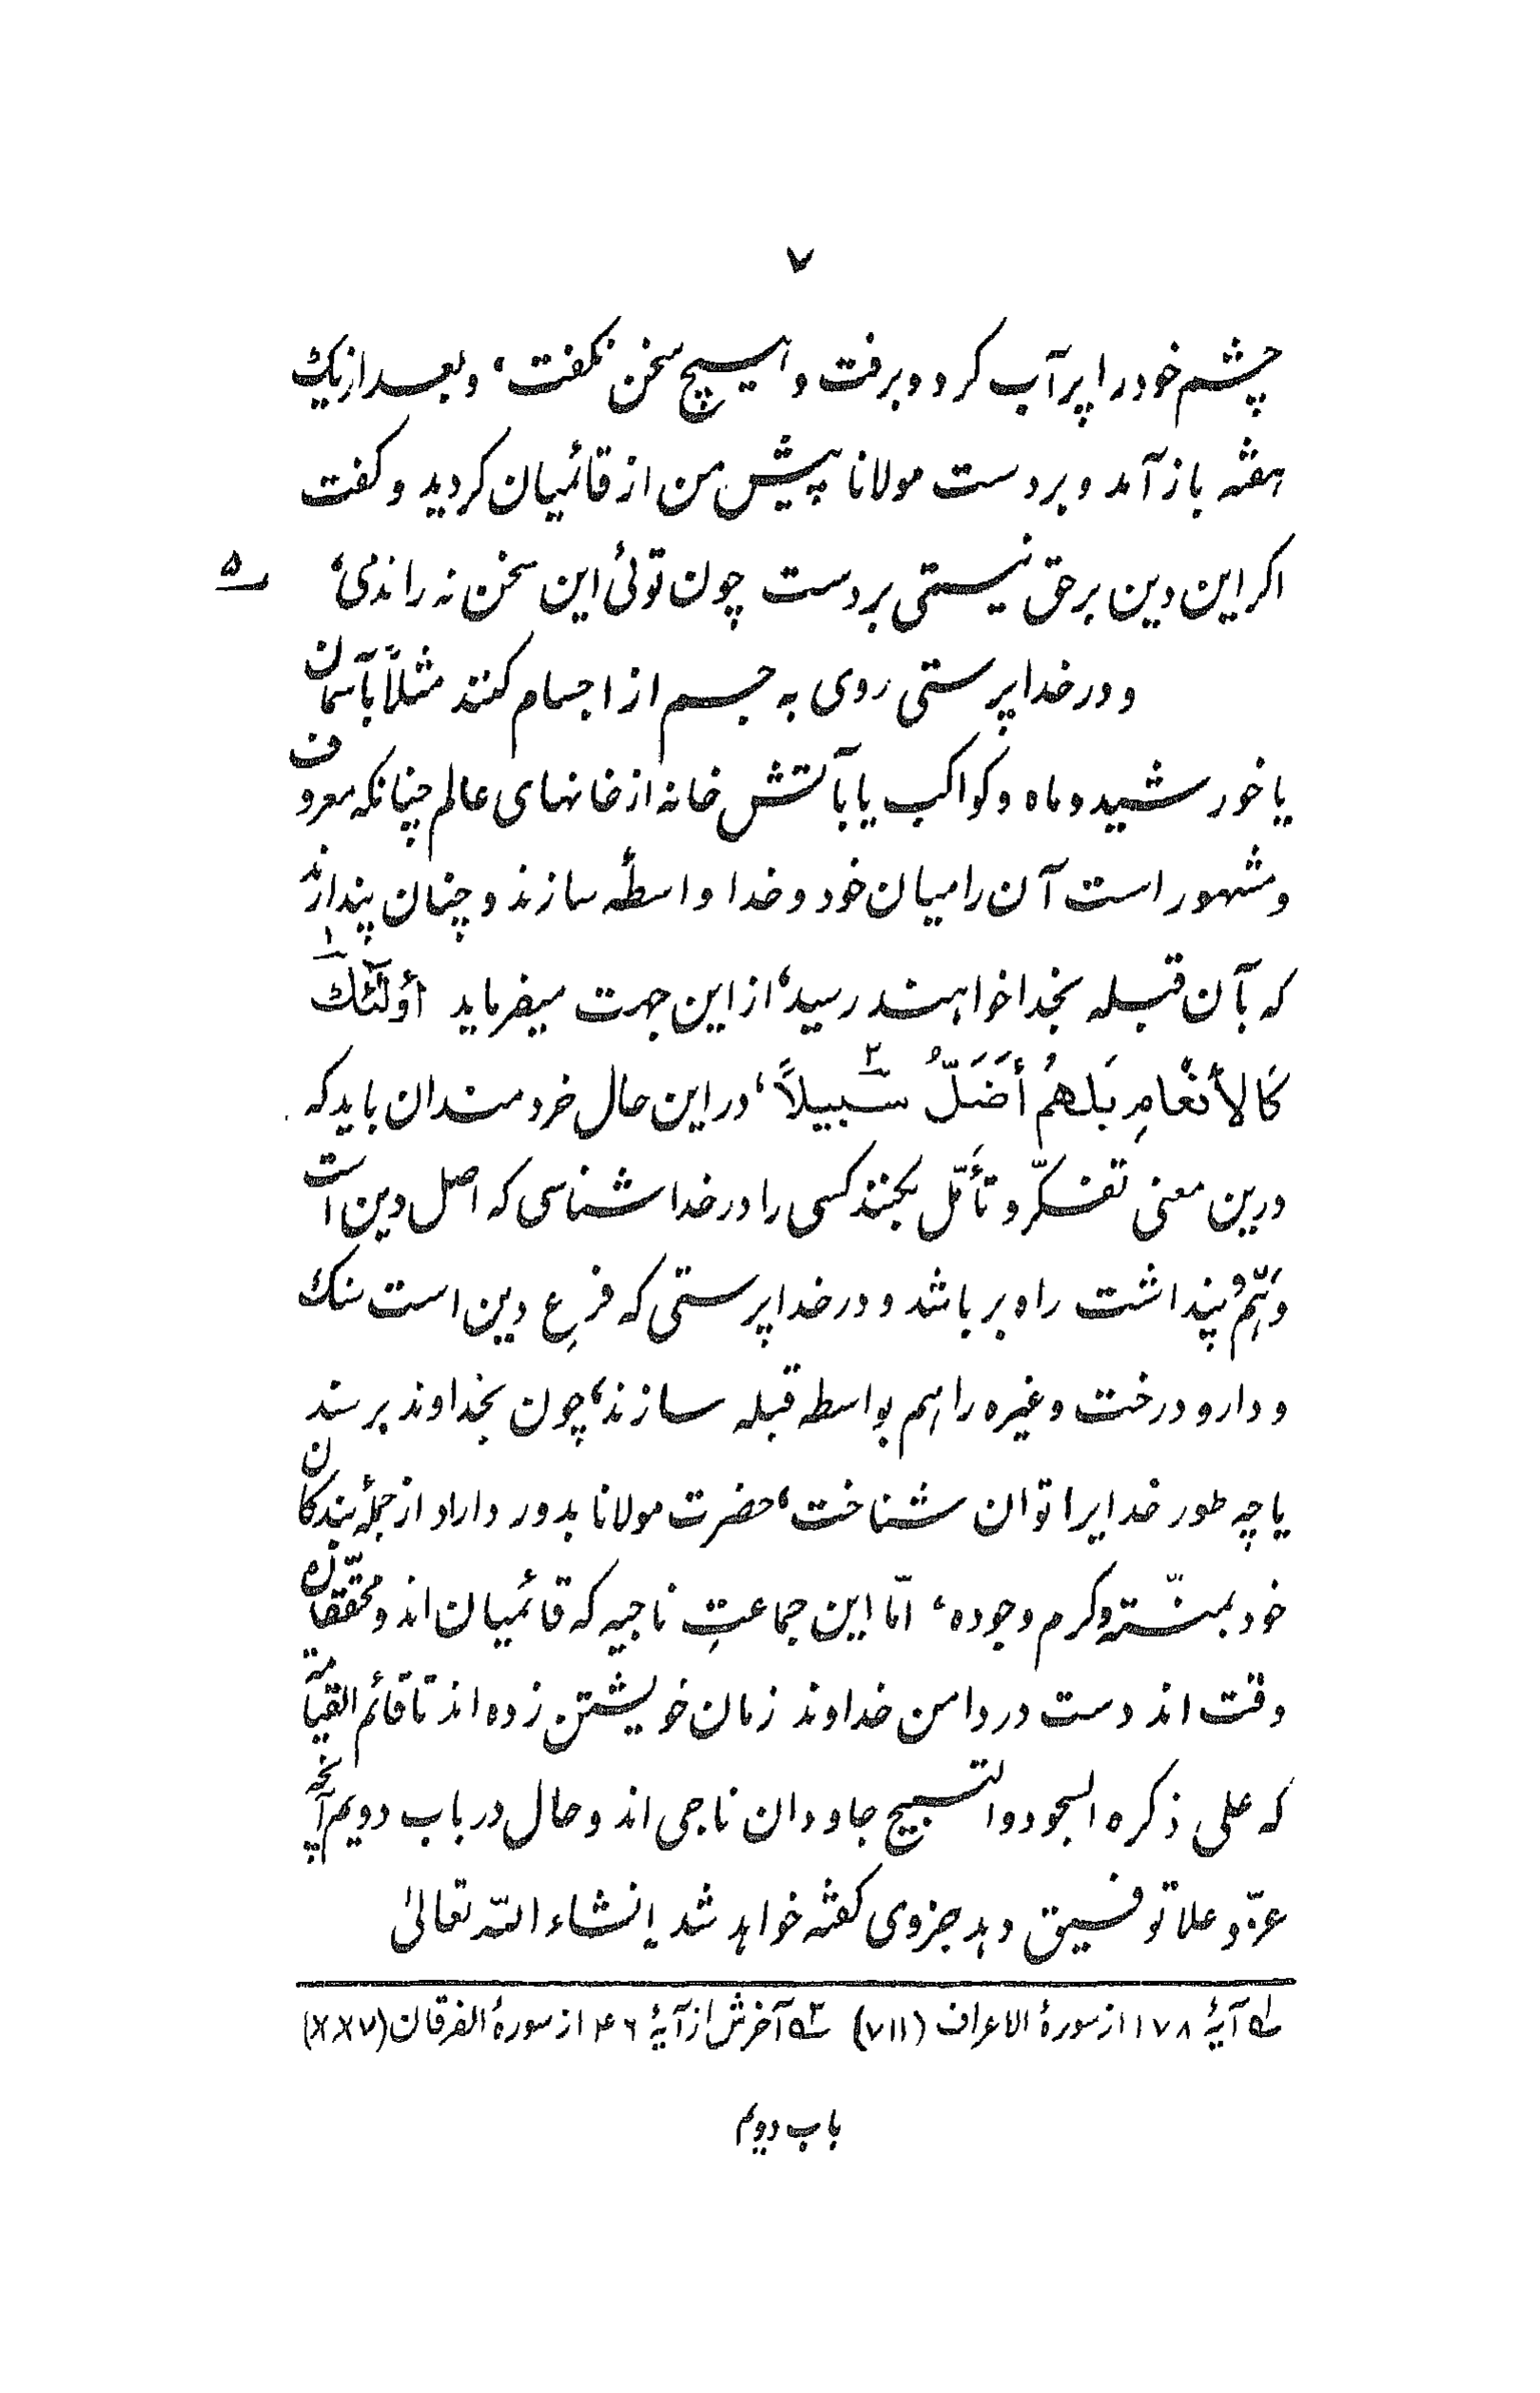 ۷
چشم خود را پر آب کرد و برفت و هیچ سخن نکفت، و بعد از یک
هفته باز آمد و بر دست مولانا پیش من از قائمیان کردید و کفت
اکر این دین بر حق نیستی بر دست چون توئی این سخن نه راندی،
۵
و در خدا پرستی روی به جسم از اجسام کنند مثلاً بآسمان
یا خورشید و ماه و کواکب یا بآتش خانه از خانهای عالم چنانکه معروف
و مشهور است آن را میان خود و خدا واسطهٔ سازند و چنان پندارند
که بآن قبله بخدا خواهند رسید، از این جهت میفرماید أولٰئك ۱
كَالأنعَامِ بَل هُم أضَلّ سَبيلاً ۲، در این حال خردمندان باید که
درین معنی تفکّر و تأمّل بکنند کسی را در خدا شناسی که اصل دین است
وَهم و پنداشت راه بر باشد و در خدا پرستی که فرعِ دین است سنک
و دار و درخت و غیره را هم بواسطه قبله سازند، چون بخداوند برسند
یا چه طور خدایرا توان شناخت، حضرت مولانا بدور داراد از جملهٔ بندکان
خود بمنّه و کرم وجوده، امّا این جماعتِ ناجیه که قائمیان اند و محقّقان
وقت اند دست در دامن خداوند زمان خویشتن زده اند تا قائم القیامة
که علی ذکره السجود و التسبیح جاودان ناجی اند و حال در باب دویم آنچه
عزّ و علا توفیق دهد جزوی کفته خواهد شد إنشاء اللّه تعالیٰ
۱ آیهٔ ۱۷۸ از سورهٔ الاعراف (VII) ۲ آخرش از آیهٔ ۴۶ از سورهٔ الفرقان (XXV)
باب دویم